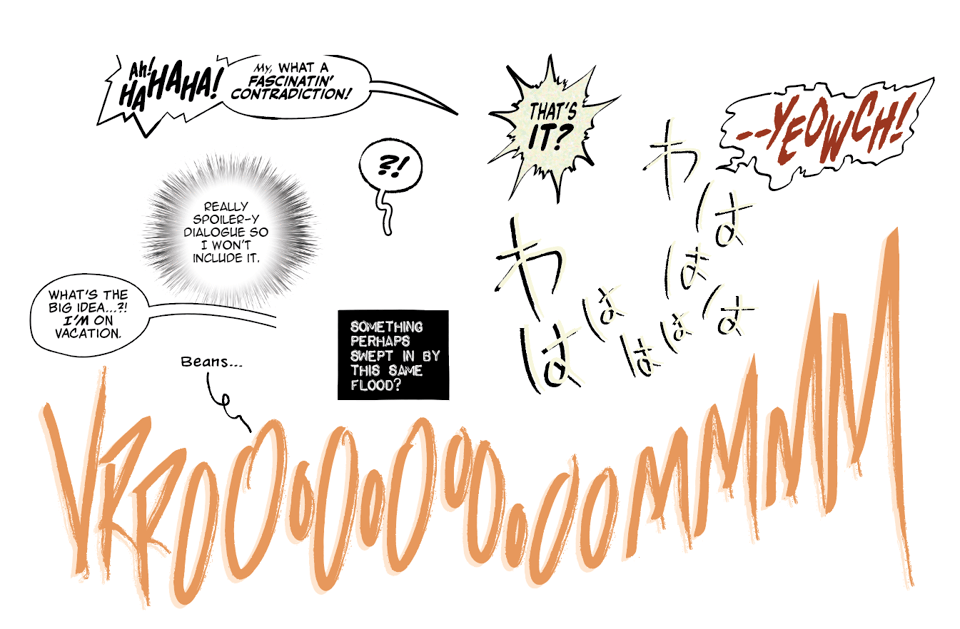 Ah!
HAHAHA!
My, WHAT A
FASCINATIN'
CONTRADICTION!
THAT'S
IT?
--YEOWCH!
?!
わははは
わはははは
REALLY
SPOILER-Y
DIALOGUE SO
I WON'T
INCLUDE IT.
WHAT'S THE
BIG IDEA...?!
I'M ON
VACATION.
SOMETHING
PERHAPS
SWEPT IN BY
THIS SAME
FLOOD?
Beans...
VRROOoOoOoOoOOMMMM